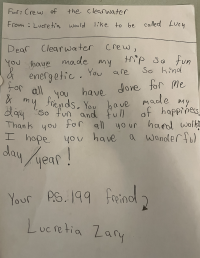 For: Crew of the clearwater
From: Lucretia would like to be called Lucy
Dear Clearwater Crew,
you have made my trip so fun
& energetic. You are so kind
for all you have done for me
& my friends. You have made my
day so fun and full of happiness.
Thank you for all your hard work!
I hope you have a wonderful
day/year!
Your P.S. 199 freind
Lucretia Zary